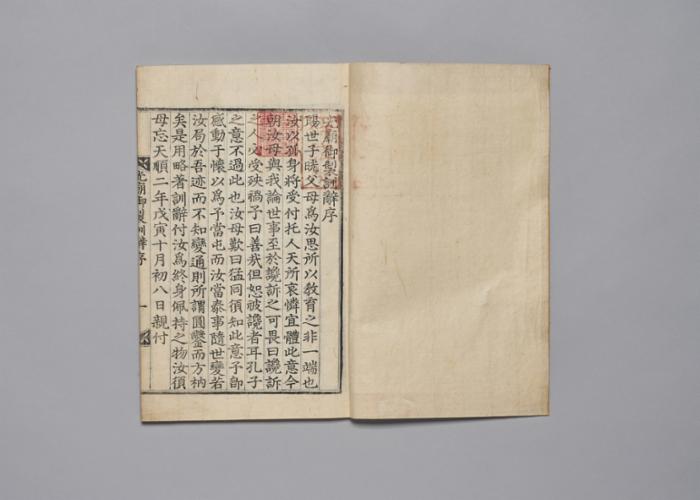 光廟御製訓辭序
賜世子晄父母爲汝思所以敎育之非一端也
汝以孤身將受付托人天所哀憐宜體此意今
朝汝母與我論世事至於讒訴之可畏曰讒訴
之人必受殃禍予曰善哉但恕被讒者耳孔子
之意不過此也汝母歎曰猛同須知此意予卽
感動于懷以爲予當屯而汝當泰事隨世變若
汝局於吾迹而不知變通則所謂圓鑿而方枘
矣是用略著訓辭付汝爲終身佩持之物汝須
毋忘天順二年戊寅十月初八日親付
光廟御製訓辭序
一